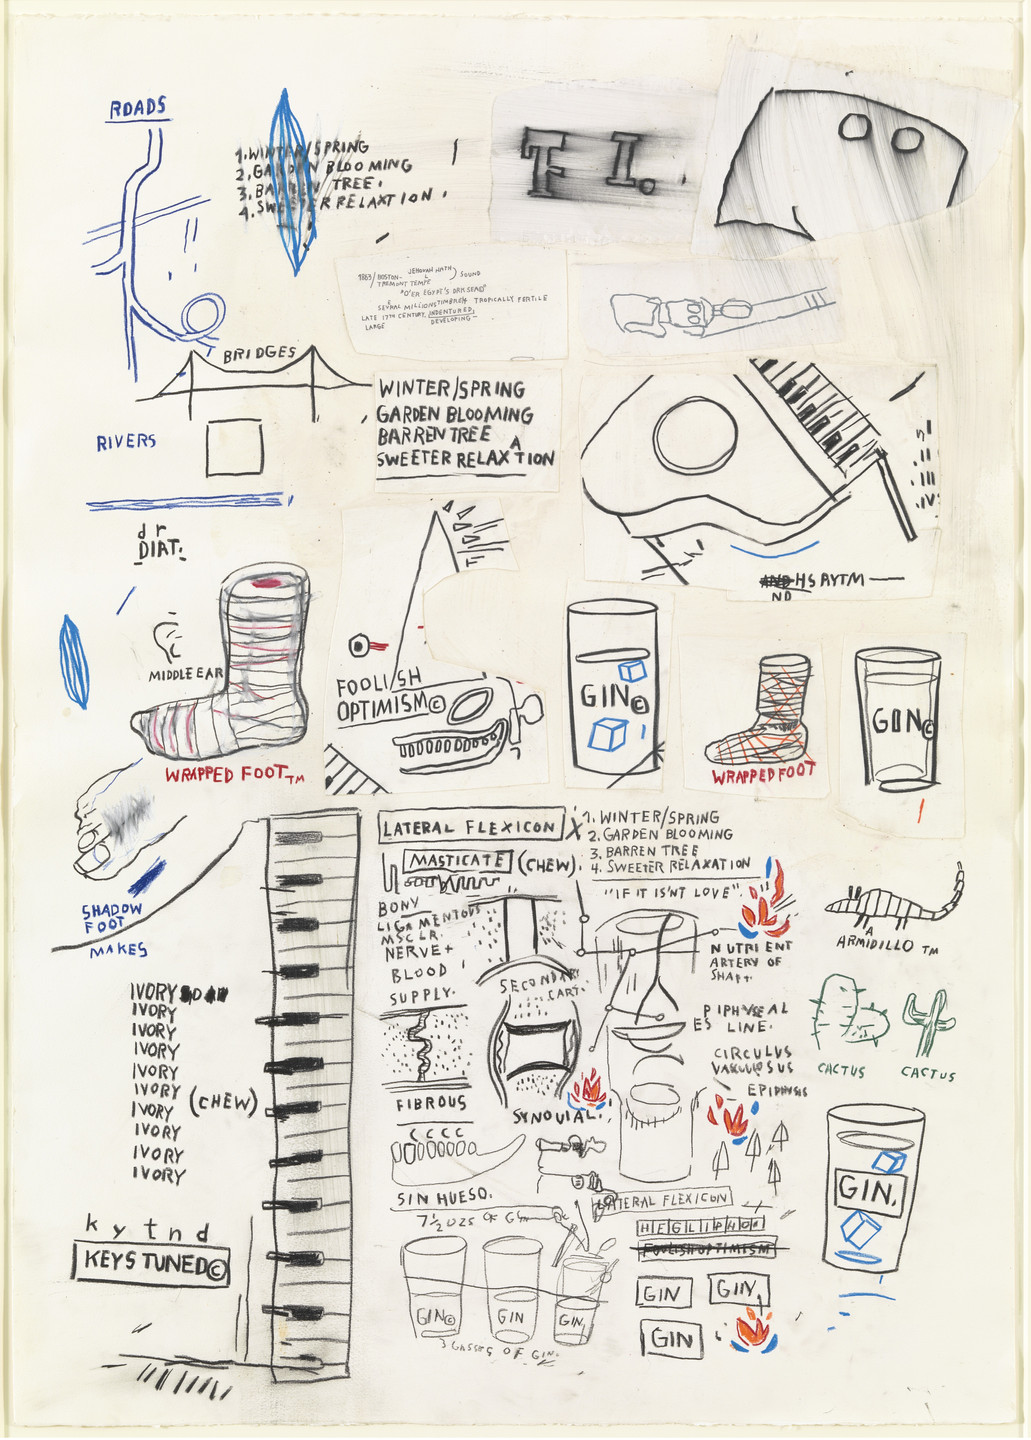 ROADS
1. WINTER/SPRING
2. GARDEN BLOOMING
3. BARREN TREE.
4. SWEETER RELAXTION.
F I.
1863/BOSTON-
TREMONT TEMPE
JEHOVAH HATH
SOUND
"O'ER EGYPT'S DARK SEA
TIMBREL
TROPICALLY FERTILE
LATE 17TH CENTURY, INDENTURED,
LARGE
DEVELOPING-
BRIDGES
WINTER/SPRING
GARDEN BLOOMING
BARREN TREE
SWEETER RELAXATION
RIVERS
dr
DIAT.
ND
MIDDLE EAR
WRAPPED FOOT TM
FOOLISH
OPTIMISM©
GIN©
WRAPPED FOOT
GIN©
SHADOW
FOOT
MAKES
LATERAL FLEXICON X
MASTICATE (CHEW).
BONY
LIGAMENTOUS
MSCLR.
NERVE+
BLOOD
SUPPLY.
SECONDARY
CART.
FIBROUS
SYNOVIAL.
1. WINTER/SPRING
2. GARDEN BLOOMING
3. BARREN TREE
4. SWEETER RELAXATION
"IF IT IS'NT LOVE".
NUTRIENT
ARTERY OF
SHAFT.
PIPHYSEAL
ES LINE.
CIRCULUS
VASCULOSUS
EPIPHYSIS
A
ARMIDILLO TM
CACTUS
CACTUS
IVORY
IVORY
IVORY
IVORY
IVORY
IVORY (CHEW)
IVORY
IVORY
IVORY
IVORY
kytnd
KEYS TUNED©
CCCC
SIN HUESO.
7½ OZS OF G
GIN©
GIN
GIN
3 GASSES OF GIN.
LATERAL FLEXICON
FOOLISH OPTIMISM
GIN
GIN
GIN
GIN.